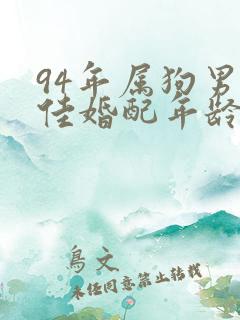 94年属狗男
佳婚配年龄
鳥文
未经同意禁止转载